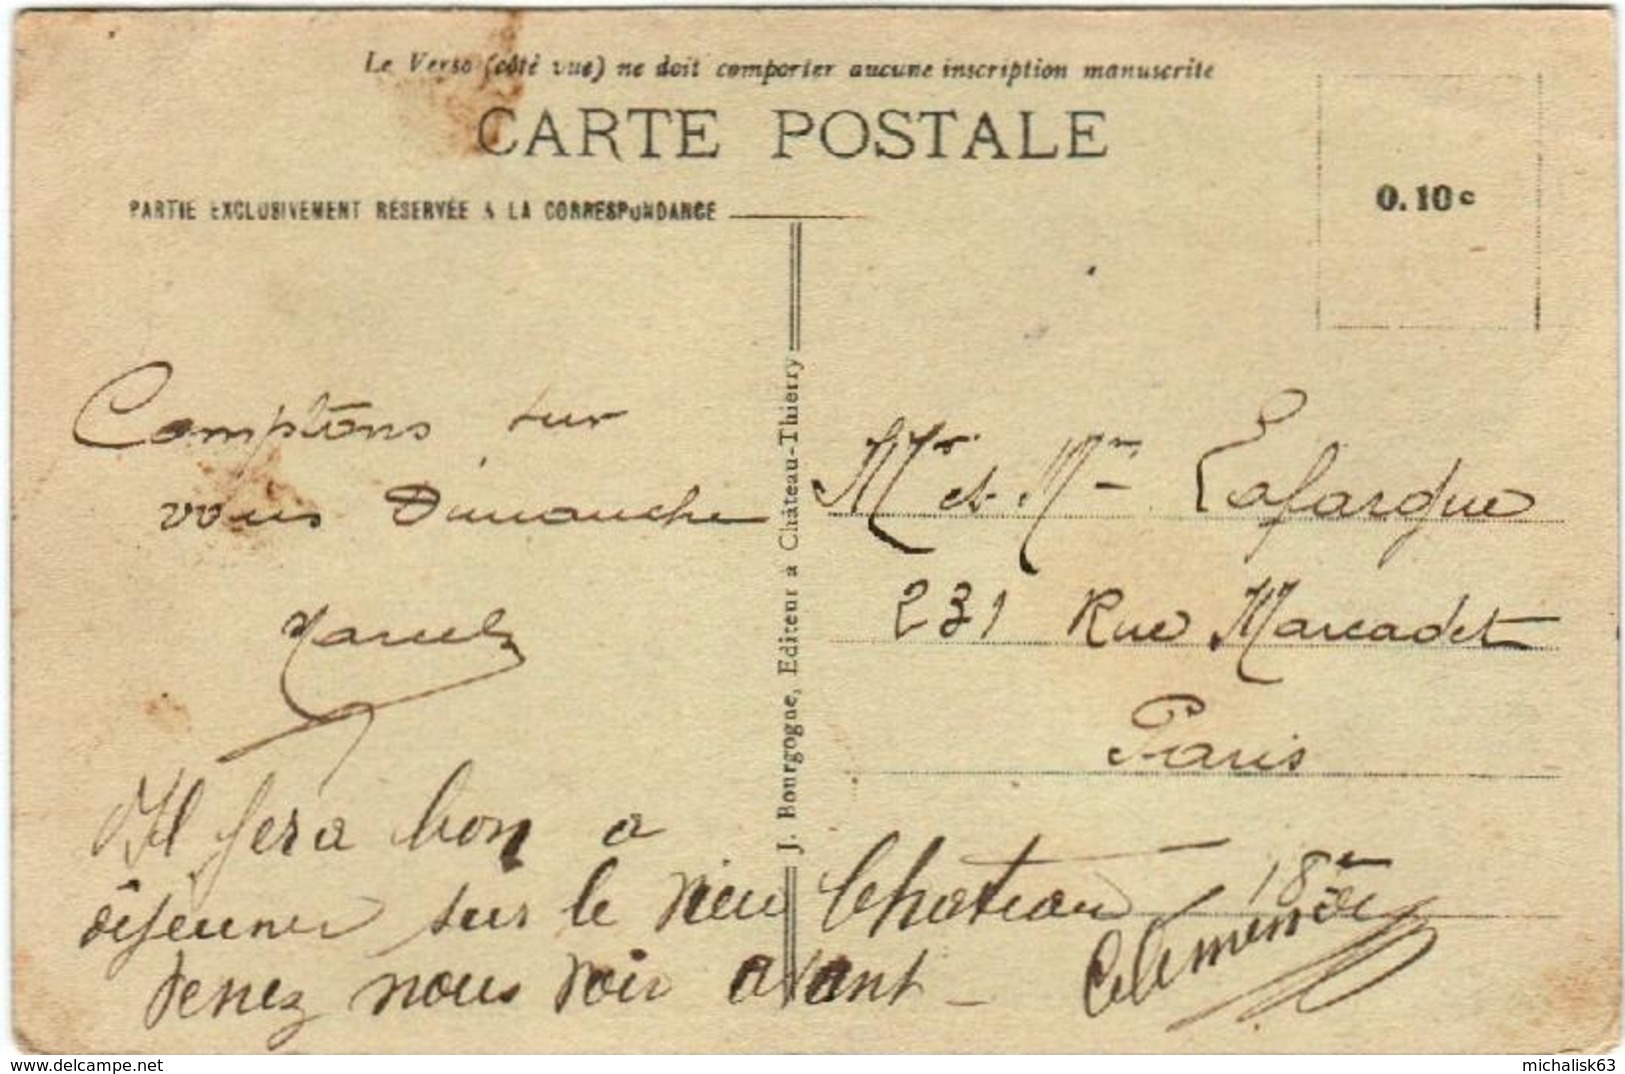 Le Verso (côté vue) ne doit comporter aucune inscription manuscrite
CARTE POSTALE
PARTIE EXCLUSIVEMENT RÉSERVÉE A LA CORRESPONDANCE
0.10c
Comptons sur
vous Dimanche
Marcel
Il fera bon a
déjeuner sur le vieu Chateau
Venez nous voir avant
Clemence
J. Bourgogne, Editeur a Château-Thierry
Mr et Mme Lafargue
231 Rue Marcadet
Paris
18em
delcampe.net
michalisk63